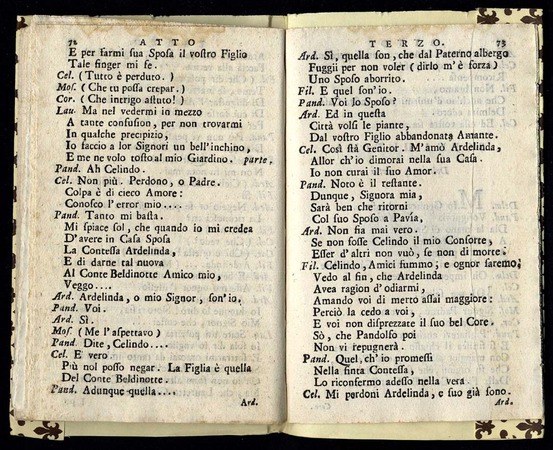 72 ATTO
E per farmi sua Sposa il vostro Figlio
Tale finger mi fe.
Cel. (Tutto è perduto.)
Mos. (Che tu possa crepar.)
Cor. (Che intrigo astuto!)
Lau. Ma nel vedermi in mezzo
A tante confusion, per non trovarmi
In qualche precipizio,
Io faccio a lor Signori un bell'inchino,
E me ne volo tosto al mio Giardino. parte.
Pand. Ah Celindo.
Cel. Non più. Perdono, o Padre.
Colpa è di cieco Amore:
Conosco l'error mio....
Pand. Tanto mi basta.
Mi spiace sol, che quando io mi credea
D'avere in Casa Sposa
La Contessa Ardelinda,
E di darne tal nuova
Al Conte Beldinotte Amico mio,
Veggo....
Ard. Ardelinda, o mio Signor, son'io.
Pand. Voi.
Ard. Sì.
Mos. (Me l'aspettavo)
Pand. Dite, Celindo....
Cel. E vero.
Più nol posso negar. La Figlia è quella
Del Conte Beldinotte.
Pand. Adunque quella....
Ard.
TERZO. 73
Ard. Sì, quella son, che dal Paterno albergo
Fuggii per non voler (dirlo m'è forza)
Uno Sposo aborrito.
Fil. E quel son'io.
Pand. Voi lo Sposo?
Ard. Ed in questa
Città volsi le piante,
Dal vostro Figlio abbandonata Amante.
Cel. Così stà Genitor. M'amò Ardelinda,
Allor ch'io dimorai nella sua Casa.
Io non curai il suo Amor.
Pand. Noto è il restante.
Dunque, Signora mia,
Sarà ben che ritorni
Col suo Sposo a Pavia,
Ard. Non fia mai vero.
Se non fosse Celindo il mio Consorte,
Esser d'altri non vuò, se non di morte.
Fil. Celindo, Amici summo; e ognor saremo;
Vedo al fin, che Ardelinda
Avea ragion d'odiarmi,
Amando voi di merto assai maggiore:
Perciò la cedo a voi,
E voi non disprezzate il suo bel Core.
Sò, che Pandolfo poi
Non vi repugnerà.
Pand. Quel, ch'io promessi
Nella finta Contessa,
Lo riconfermo adesso nella vera
Cel. Mi perdoni Ardelinda, e suo già sono.
Ard.